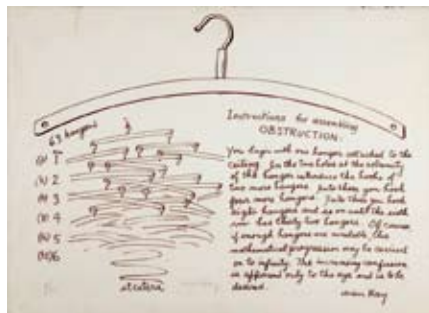 63 hangers
Instructions for assembling
OBSTRUCTION.
(1) 1
(2) 2
3
4
5
6
etcetera
You begin with one hanger attached to the
ceiling. In the two holes at the extremity
of the hanger introduce the hooks of
two more hangers. Into these you hook
four more hangers. Into these you hook
eight hangers and so on until the sixth
row has thirty two hangers. Of course
if enough hangers are available, this
mathematical progression may be carried
on to infinity. The increasing confusion
is apparent only to the eye and is to be
desired.
Man Ray